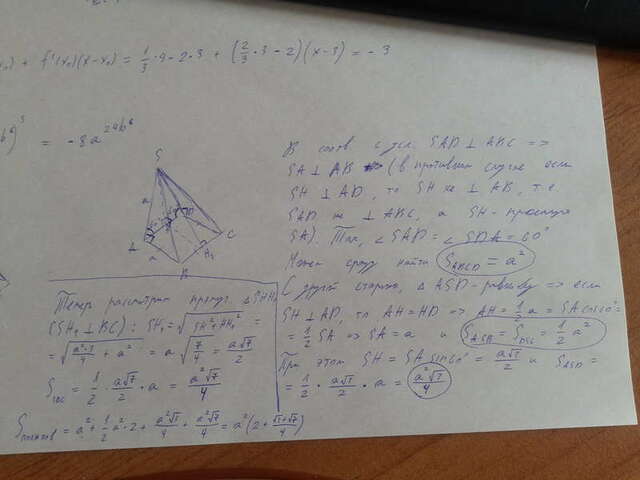 f'(x₀)(x-x₀) = 1/3 · 9 - 2·3 + (2/3 · 3 - 2)(x-3) = -3
= -8a²⁴b⁶
S
a
A
a
B
H₁
C
В соотв с усл. SAD ⊥ ABC =>
SA ⊥ AB (в противном случае если
SH ⊥ AD, то SH не ⊥ AB, т.е.
SAD не ⊥ ABC, а SH -
SA). Так, ∠SAD = ∠SDA = 60°
Можем сразу найти S_ABCD = a²
С другой стороны, Δ ASD - => если
SH ⊥ AD, то AH = HD => AH = 1/2 a = SA cos 60° =
= 1/2 SA => SA = a и S_ASB = S_DSC = 1/2 a²
При этом SH = SA sin 60° = a√3/2 и S_ASD =
= 1/2 · a√3/2 · a = a²√3/4
Теперь рассмотрим ΔSHH₁
(SH₁ ⊥ BC): SH₁ = √(SH² + HH₁²) =
= √(a²·3/4 + a²) = a√(7/4) = a√7/2
S_SBC = 1/2 · a√7/2 · a = a²√7/4
= a² + 1/2 a² · 2 + a²√3/4 + a²√7/4 = a²(2 + (√3+√7)/4)